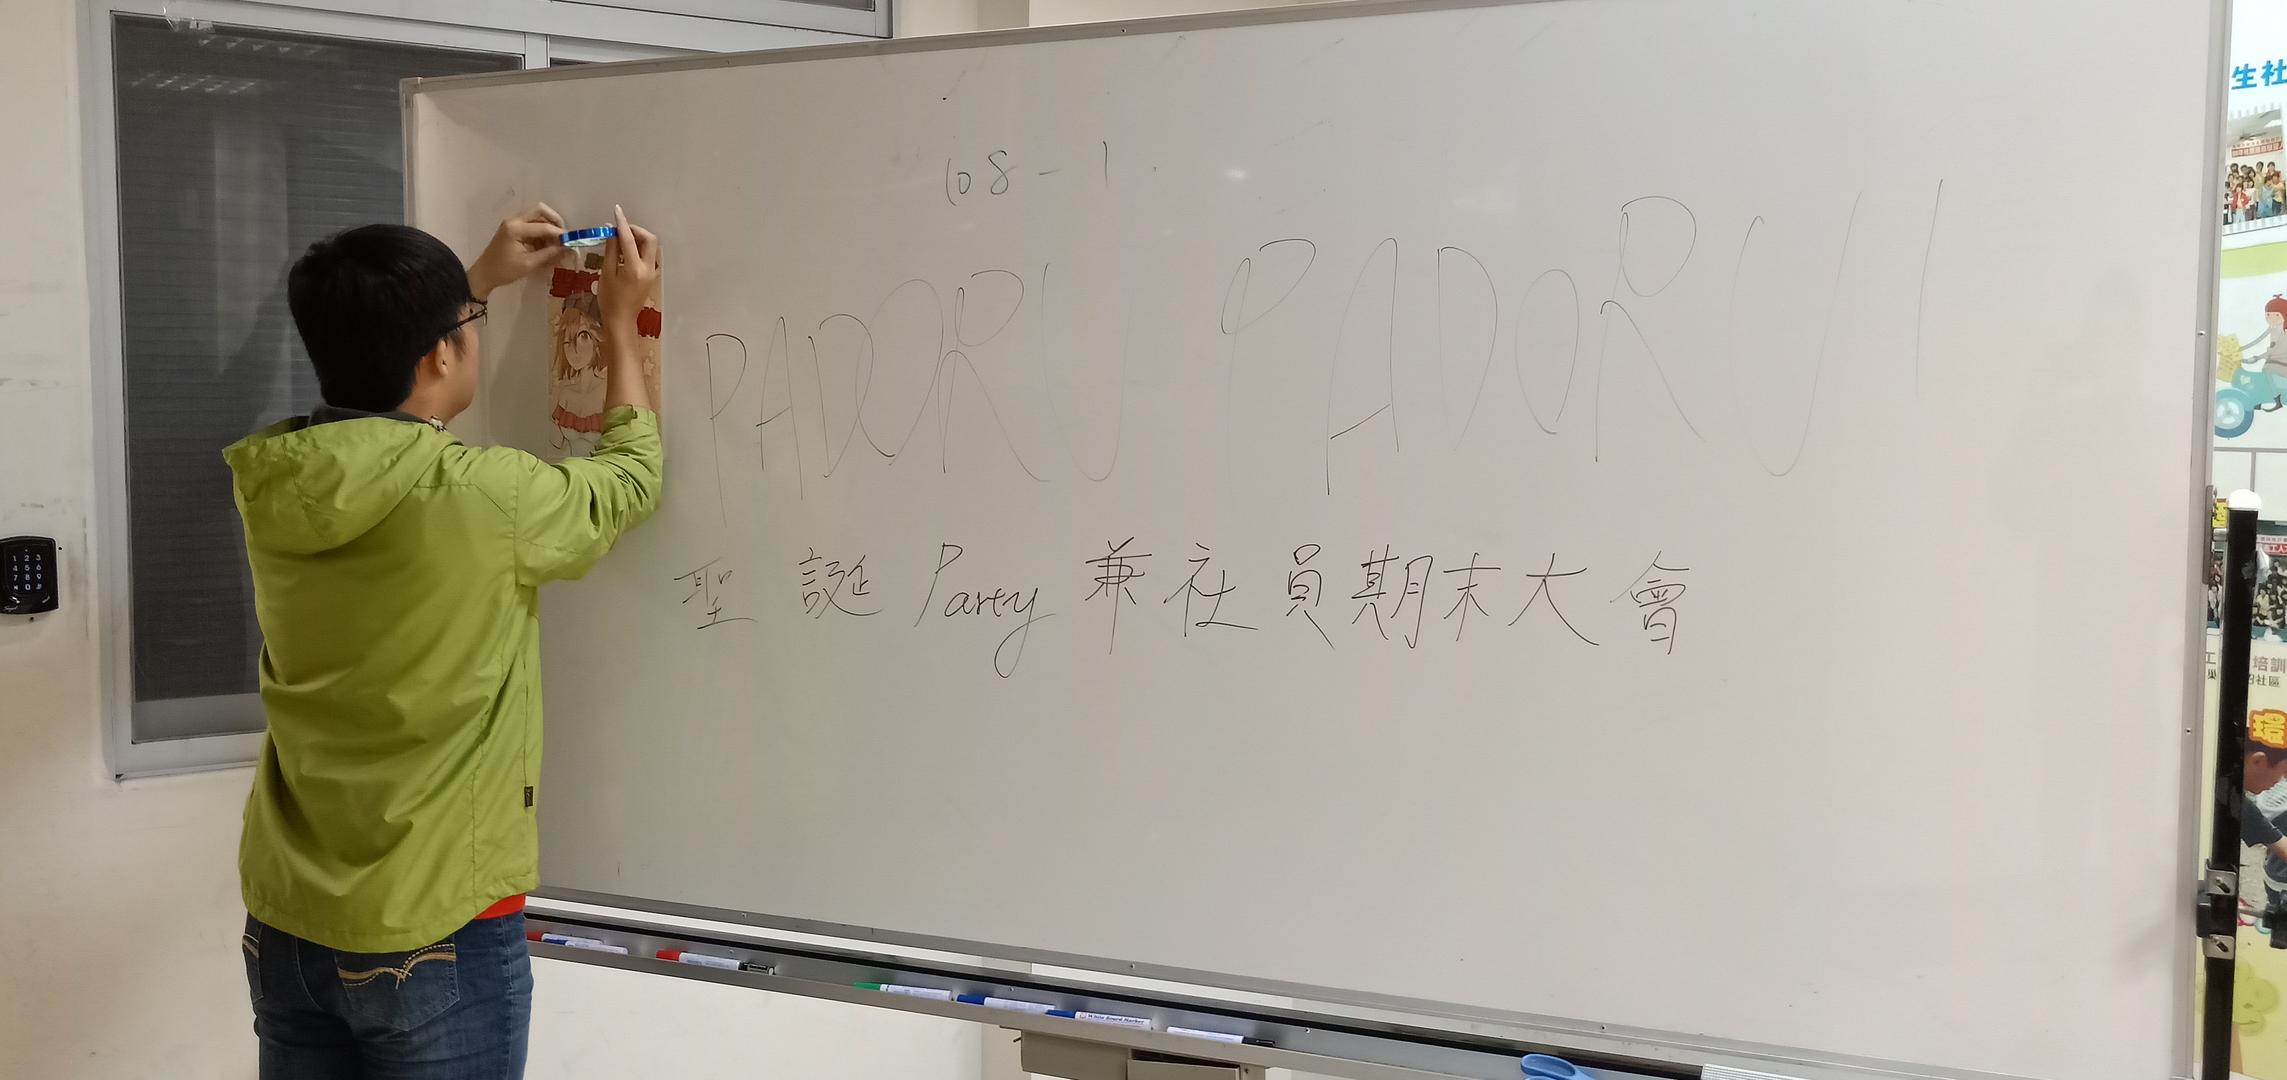 108-1
PADORU PADORU!
聖誕Party兼社員期末大會
生社
培訓
社區
1 2 3
4 5 6
7 8 9
0
White Board Marker